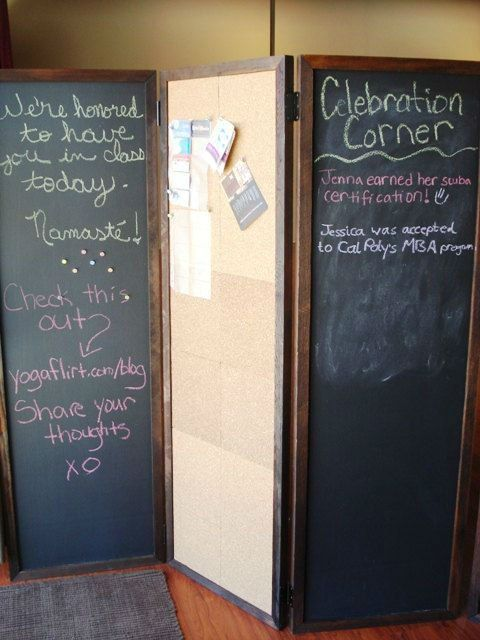 We're honored
to have
you in class
today.
Namasté!
Check this
out?
yogaflirt.com/blog
Share your
thoughts
xo
Celebration
Corner
Jenna earned her scuba
certification!
Jessica was accepted
to Cal Poly's MBA program